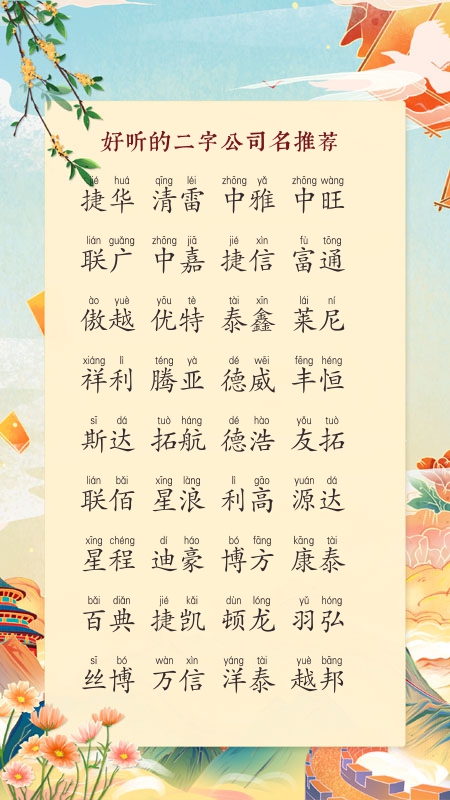 好听的二字公司名推荐
jié huá qīng léi zhōng yǎ zhōng wàng
捷华 清雷 中雅 中旺
lián guǎng zhōng jiā jié xìn fù tōng
联广 中嘉 捷信 富通
ào yuè yōu tè tài xīn lái ní
傲越 优特 泰鑫 莱尼
xiáng lì téng yà dé wēi fēng héng
祥利 腾亚 德威 丰恒
sī dá tuò háng dé hào yǒu tuò
斯达 拓航 德浩 友拓
lián bǎi xīng làng lì gāo yuán dá
联佰 星浪 利高 源达
xīng chéng dí háo bó fāng kāng tài
星程 迪豪 博方 康泰
bǎi diǎn jié kǎi dùn lóng yǔ hóng
百典 捷凯 顿龙 羽弘
sī bó wàn xìn yáng tài yuè bāng
丝博 万信 洋泰 越邦